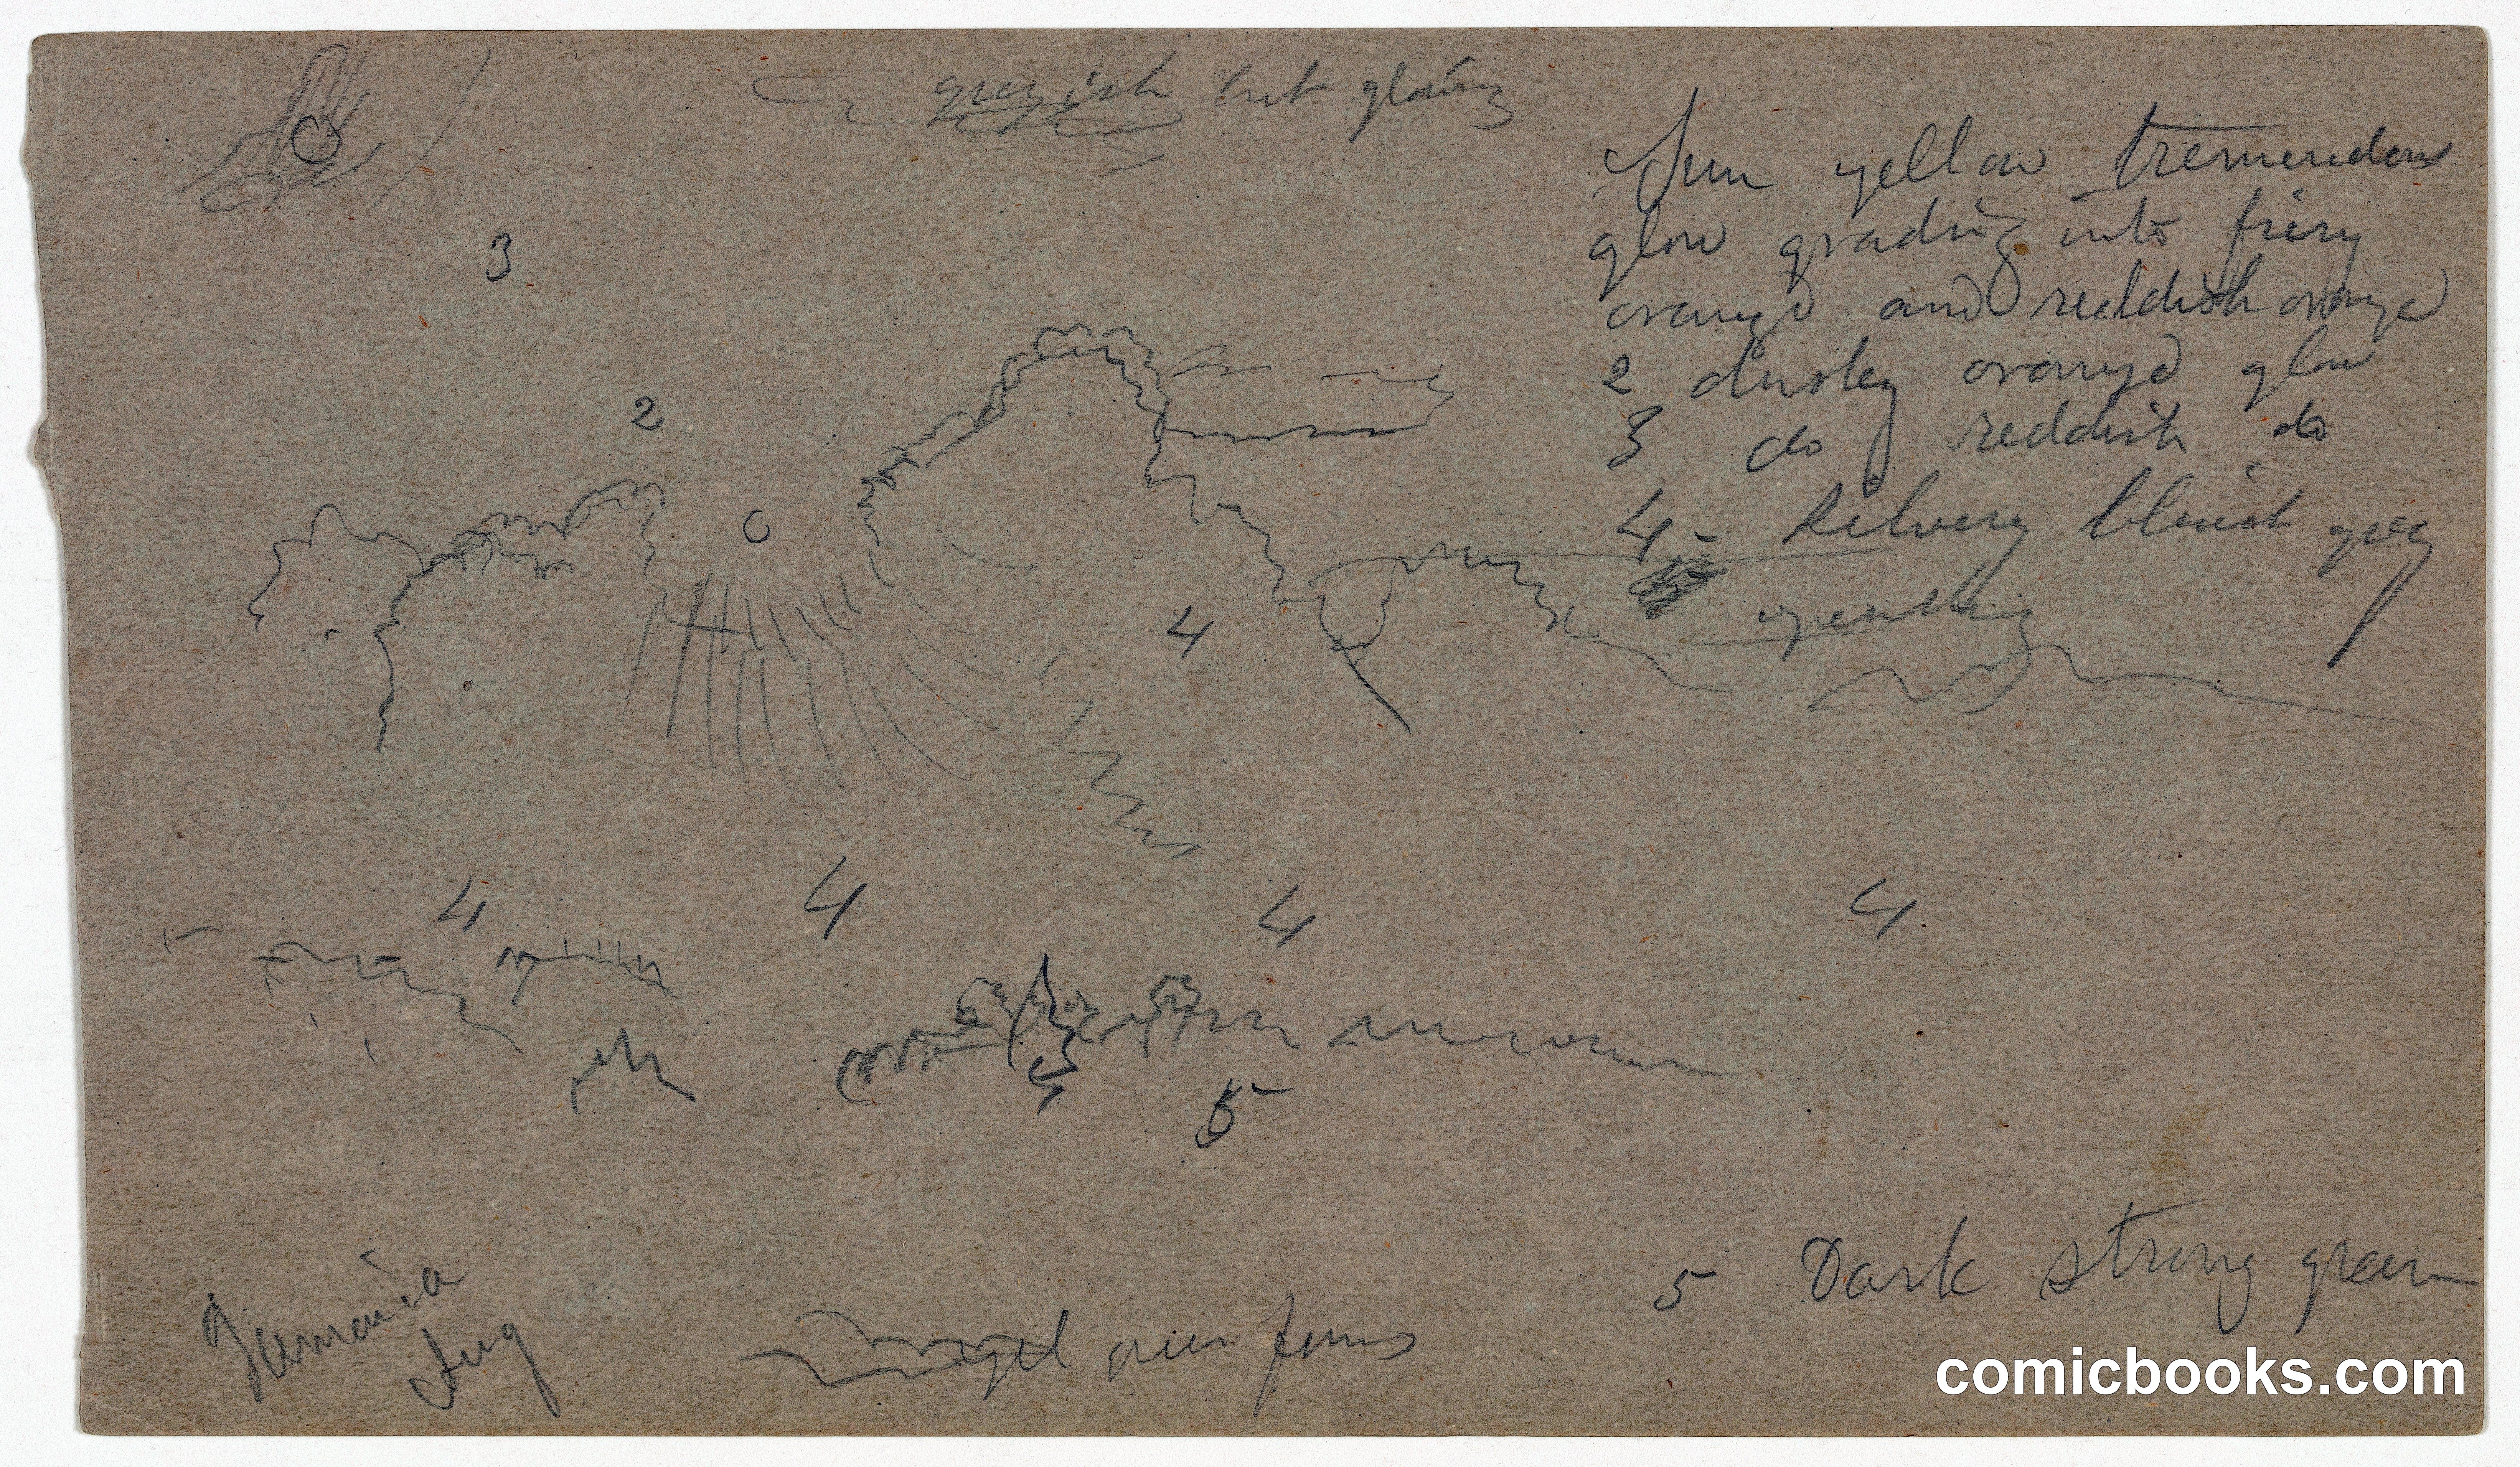 greyish but glowing
Sun yellow tremendous
glow grading into fiery
orange and reddish orange
2 dusky orange glow
3 do reddish do
4 - Silvery bluish grey
3
2
4
4 4 4 4
5
5 Dark strong green
Jamaica
Aug
over forms
comicbooks.com